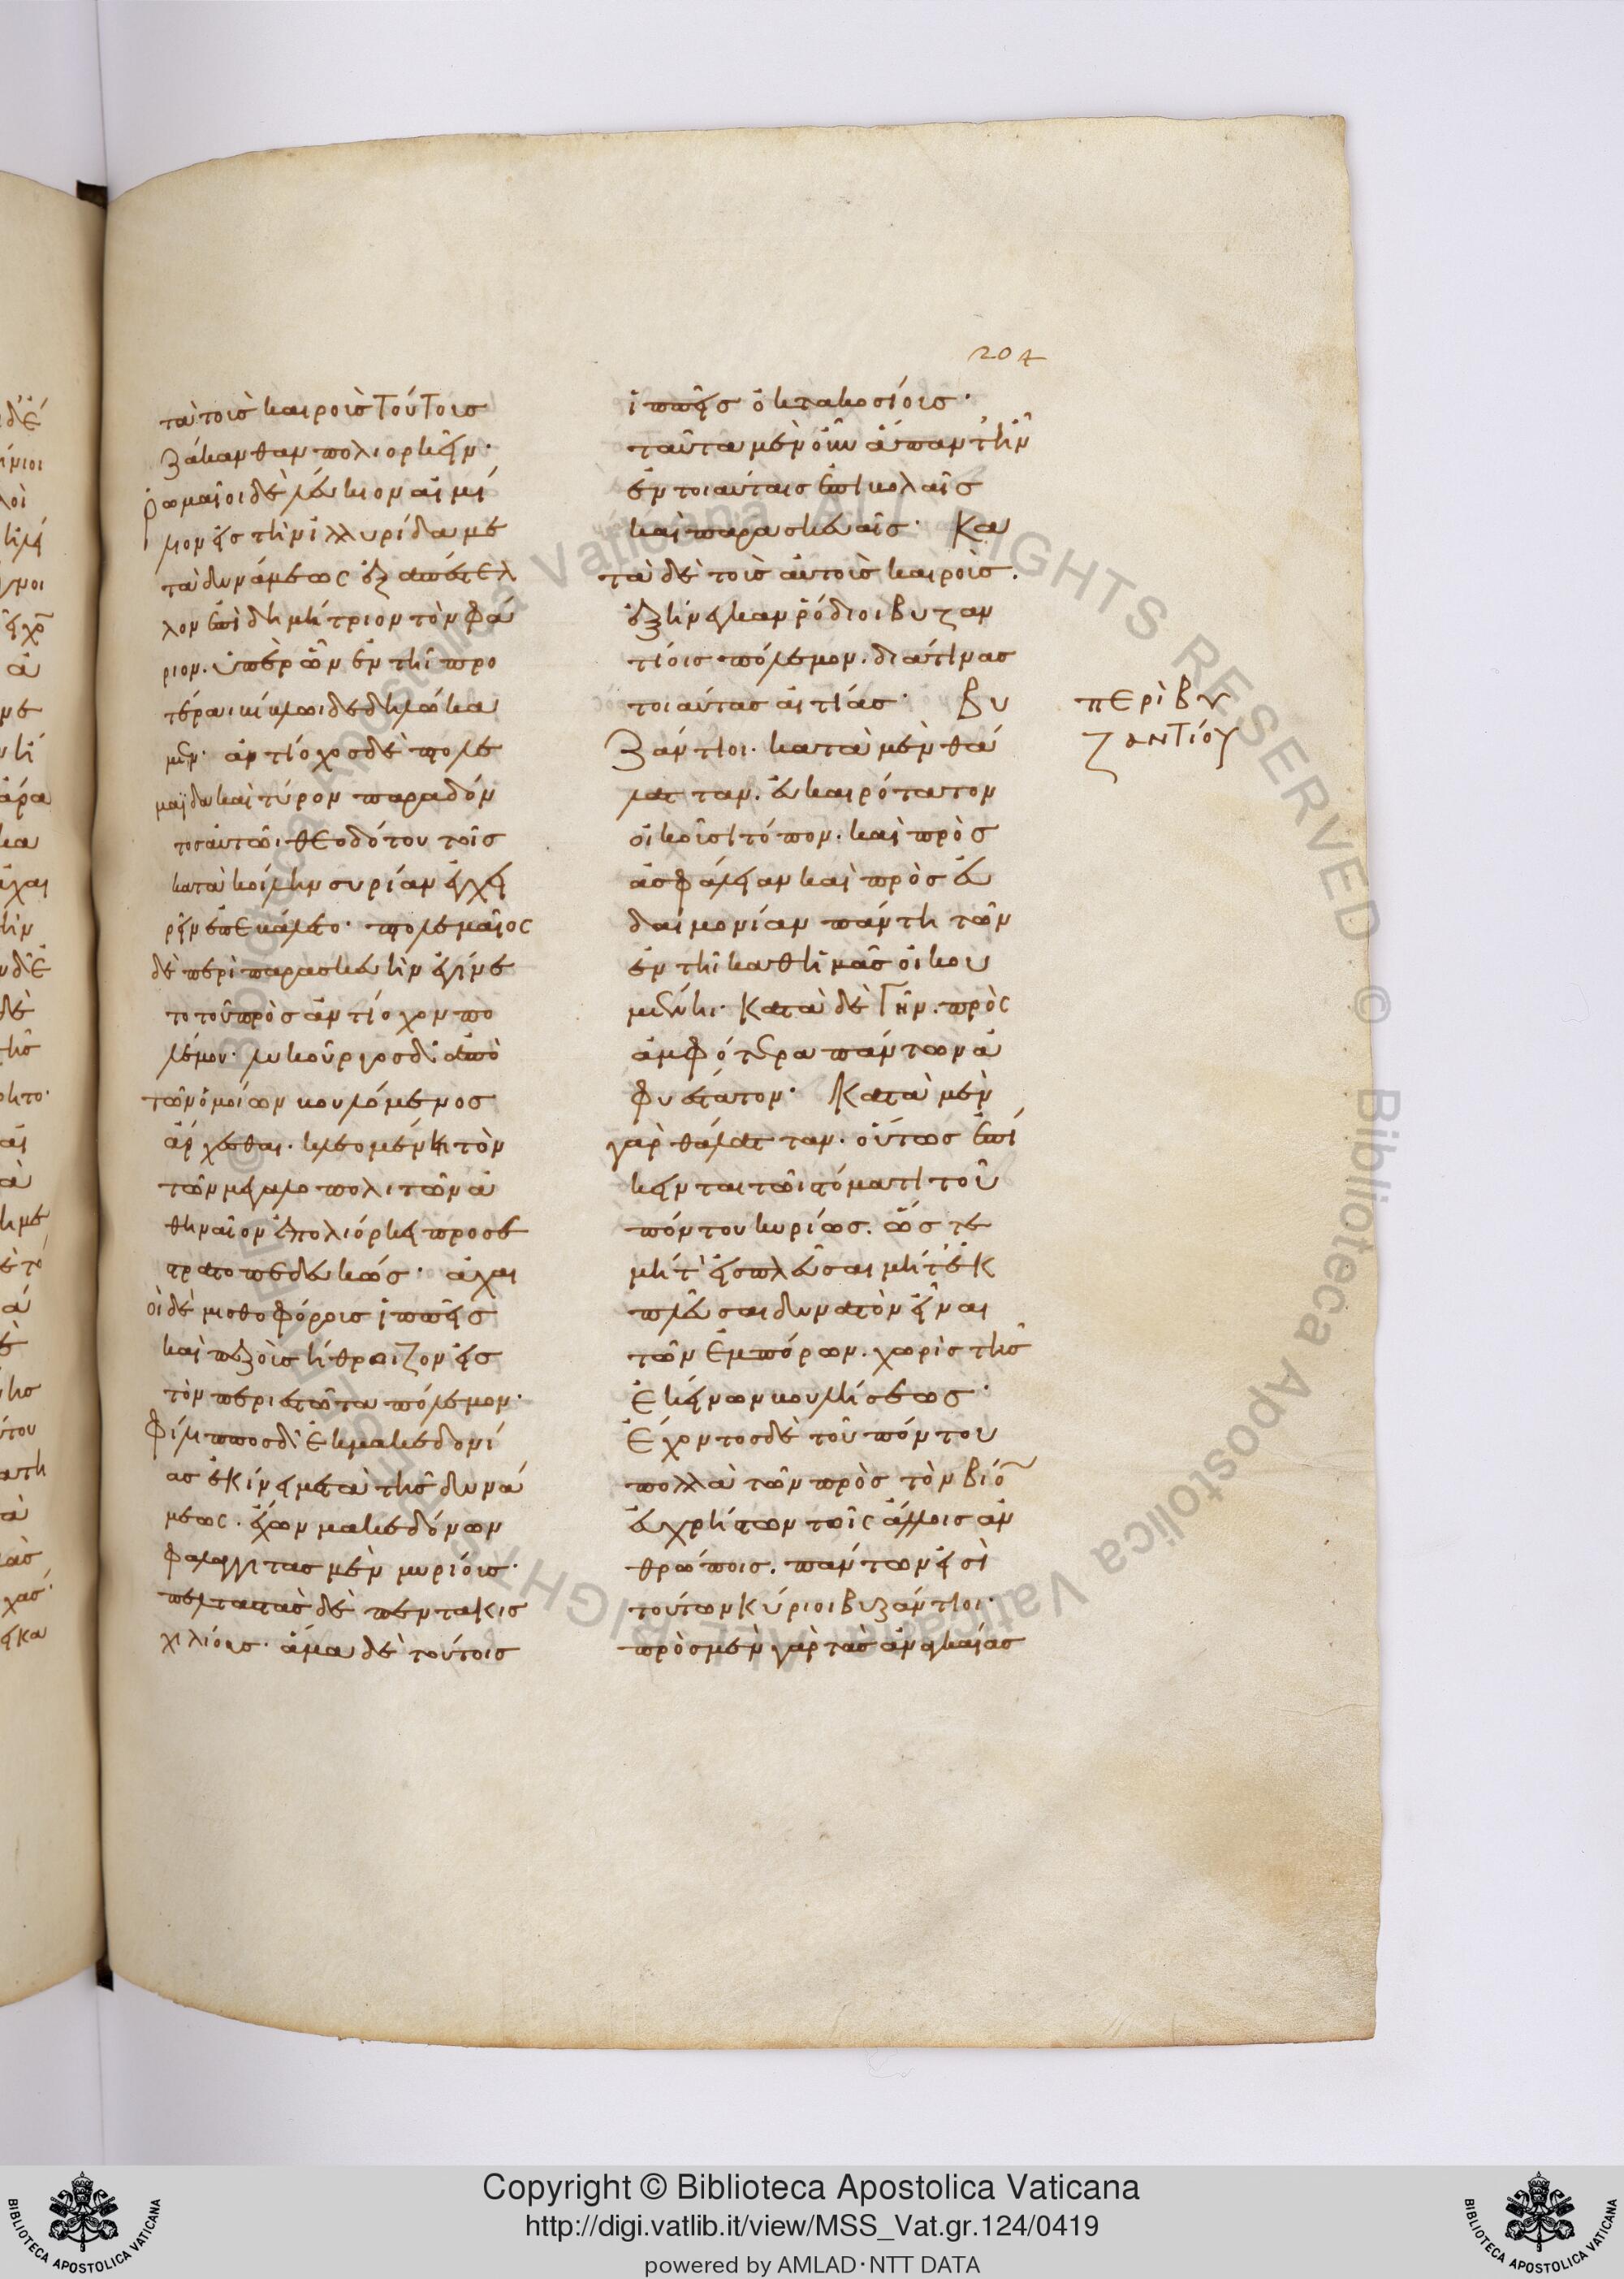 204
τὰ τοῖς καιροῖς τούτοις
ζάκανθαν πολιορκεῖν·
ῥωμαῖοι δὲ λεύκιον αἰμί
λιον εἰς τὴν ἰλλυρίδα με
τὰ δυνάμεως ἐξαπέστελ
λον ἐπὶ δημήτριον τὸν φά
ριον. ὑπὲρ ὧν ἐν τῆι προ
τέραι κύκλωι δεδηλώκα
μεν· ἀντίοχος δὲ πτολε
μαΐδα καὶ τύρον παραδόν
τος αὐτῶι θεοδότου τοῖς
κατὰ κοίλην συρίαν ἐγχει
ρεῖν ἐπεκάλετο· πτολεμαῖος
δὲ περὶ παρασκευὴν ἐγίνε
το τοῦ πρὸς ἀντίοχον πο
λέμον· λυκοῦργος δ' ἀπὸ
τῶν ὁμοίων κουλόμενος
ἄρχεσθαι. κλεομένει τὸν
τῶν μεγαλοπολιτῶν ἀ
θηναῖον ἐπολιόρκει προσε
στρατοπεδευκώς· ἀχαι
οὶ δὲ μισθοφόροις ἱππεῖς
καὶ πεζοὶς ἤθροιζον εἰς
τὸν περιεστῶτα πόλεμον·
φίλιππος δ' ἐκ μακεδονί
ας ἐκίνει μετὰ τῆς δυνά
μεως. ἔχων μακεδόνων
φαλαγγίτας μὲν μυρίοις·
πελταστὰς δὲ πεντακισ
χιλίοις· ἅμα δὲ τούτοις
ἱππεῖς ὀκτακοσίοις·
ταῦτα μὲν οὖν ἅπαντ' ἦν
ἐν τοιαύταις ἐπικολαῖς
καὶ παρασκευαῖς· Κα
τὰ δὲ τοὶς αὐτοὶς καιροὶς.
ἐξήνεγκαν ῥόδιοι βυζαν
τίοις πόλεμον. διά τινας
τοιαύτας αἰτίας· βυ
ζάντιοι. κατὰ μὲν θά
λατταν. εὐκαιρότατον
οἰκοῦσι τόπον. καὶ πρὸς
ἀσφάλειαν καὶ πρὸς εὐ
δαιμονίαν πάντη τῶν
ἐν τῆι καθ' ἡμᾶς οἰκου
μένηι· κατὰ δὲ Γῆν. πρὸς
ἀμφότερα πάντων ἀ
φυέστατον· Κατὰ μὲν
γὰρ θάλατταν. οὕτως ἐπί
κεινται τῶι στόματι τοῦ
πόντου κυρίως. ὥστε
μήτ' εἰσπλεῦσαι μήτ' ἐκ
πλεῦσαι δυνατὸν εἶναι
τῶν ἐμπόρων. χωρὶς τῆς
ἐκείνων κουλήσεως·
ἔχοντος δὲ τοῦ πόντου
πολλὰ τῶν πρὸς τὸν βίο
εὐχρήστων τοῖς ἄλλοις ἀν
θρώποις. πάντων εἰσὶ
τούτων κύριοι βυζάντιοι·
πρὸς μὲν γὰρ τὰς ἀναγκαίας
πΕρὶ βυ
ζαντίου
Copyright © Biblioteca Apostolica Vaticana
http://digi.vatlib.it/view/MSS_Vat.gr.124/0419
powered by AMLAD·NTT DATA